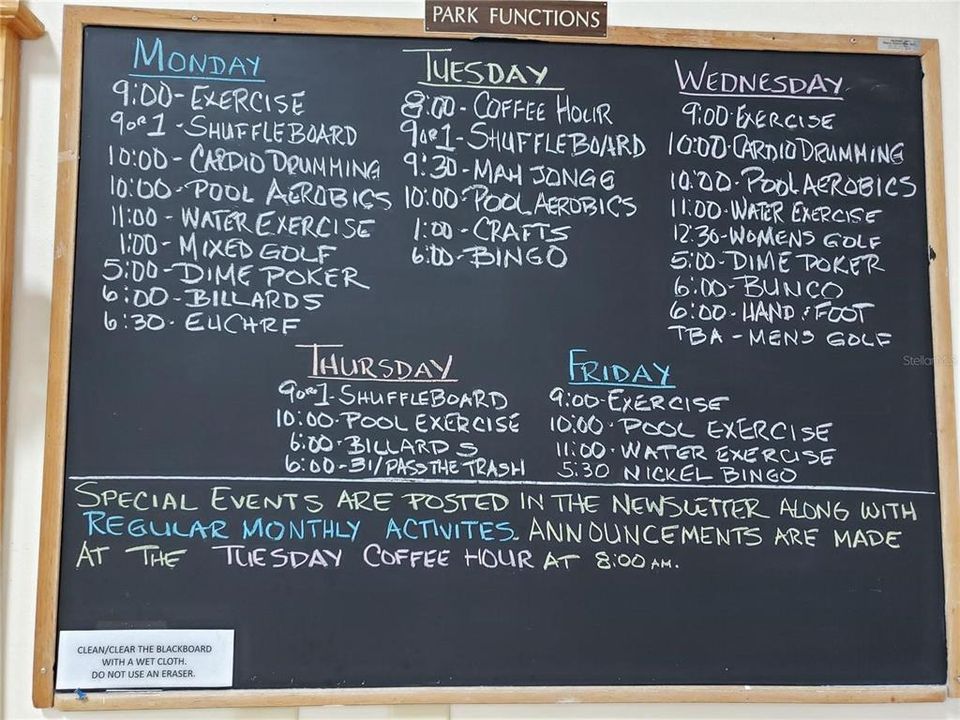 PARK FUNCTIONS
MONDAY
9:00 - EXERCISE
9 OR 1 - SHUFFLEBOARD
10:00 - CARDIO DRUMMING
10:00 - POOL AEROBICS
11:00 - WATER EXERCISE
1:00 - MIXED GOLF
5:00 - DIME POKER
6:00 - BILLARDS
6:30 - EUCHRE
TUESDAY
8:00 - COFFEE HOUR
9 OR 1 - SHUFFLEBOARD
9:30 - MAH JONGG
10:00 - POOL AEROBICS
1:00 - CRAFTS
6:00 - BINGO
WEDNESDAY
9:00 EXERCISE
10:00 - CARDIO DRUMMING
10:00 - POOL AEROBICS
11:00 - WATER EXERCISE
12:30 - WOMENS GOLF
5:00 - DIME POKER
6:00 - BUNCO
6:00 - HAND & FOOT
TBA - MENS GOLF
THURSDAY
9 OR 1 - SHUFFLEBOARD
10:00 - POOL EXERCISE
6:00 - BILLARDS
6:00 - 31/PASS THE TRASH
FRIDAY
9:00 - EXERCISE
10:00 - POOL EXERCISE
11:00 - WATER EXERCISE
5:30 NICKEL BINGO
SPECIAL EVENTS ARE POSTED IN THE NEWSLETTER ALONG WITH
REGULAR MONTHLY ACTIVITES. ANNOUNCEMENTS ARE MADE
AT THE TUESDAY COFFEE HOUR AT 8:00 AM.
CLEAN/CLEAR THE BLACKBOARD
WITH A WET CLOTH.
DO NOT USE AN ERASER.